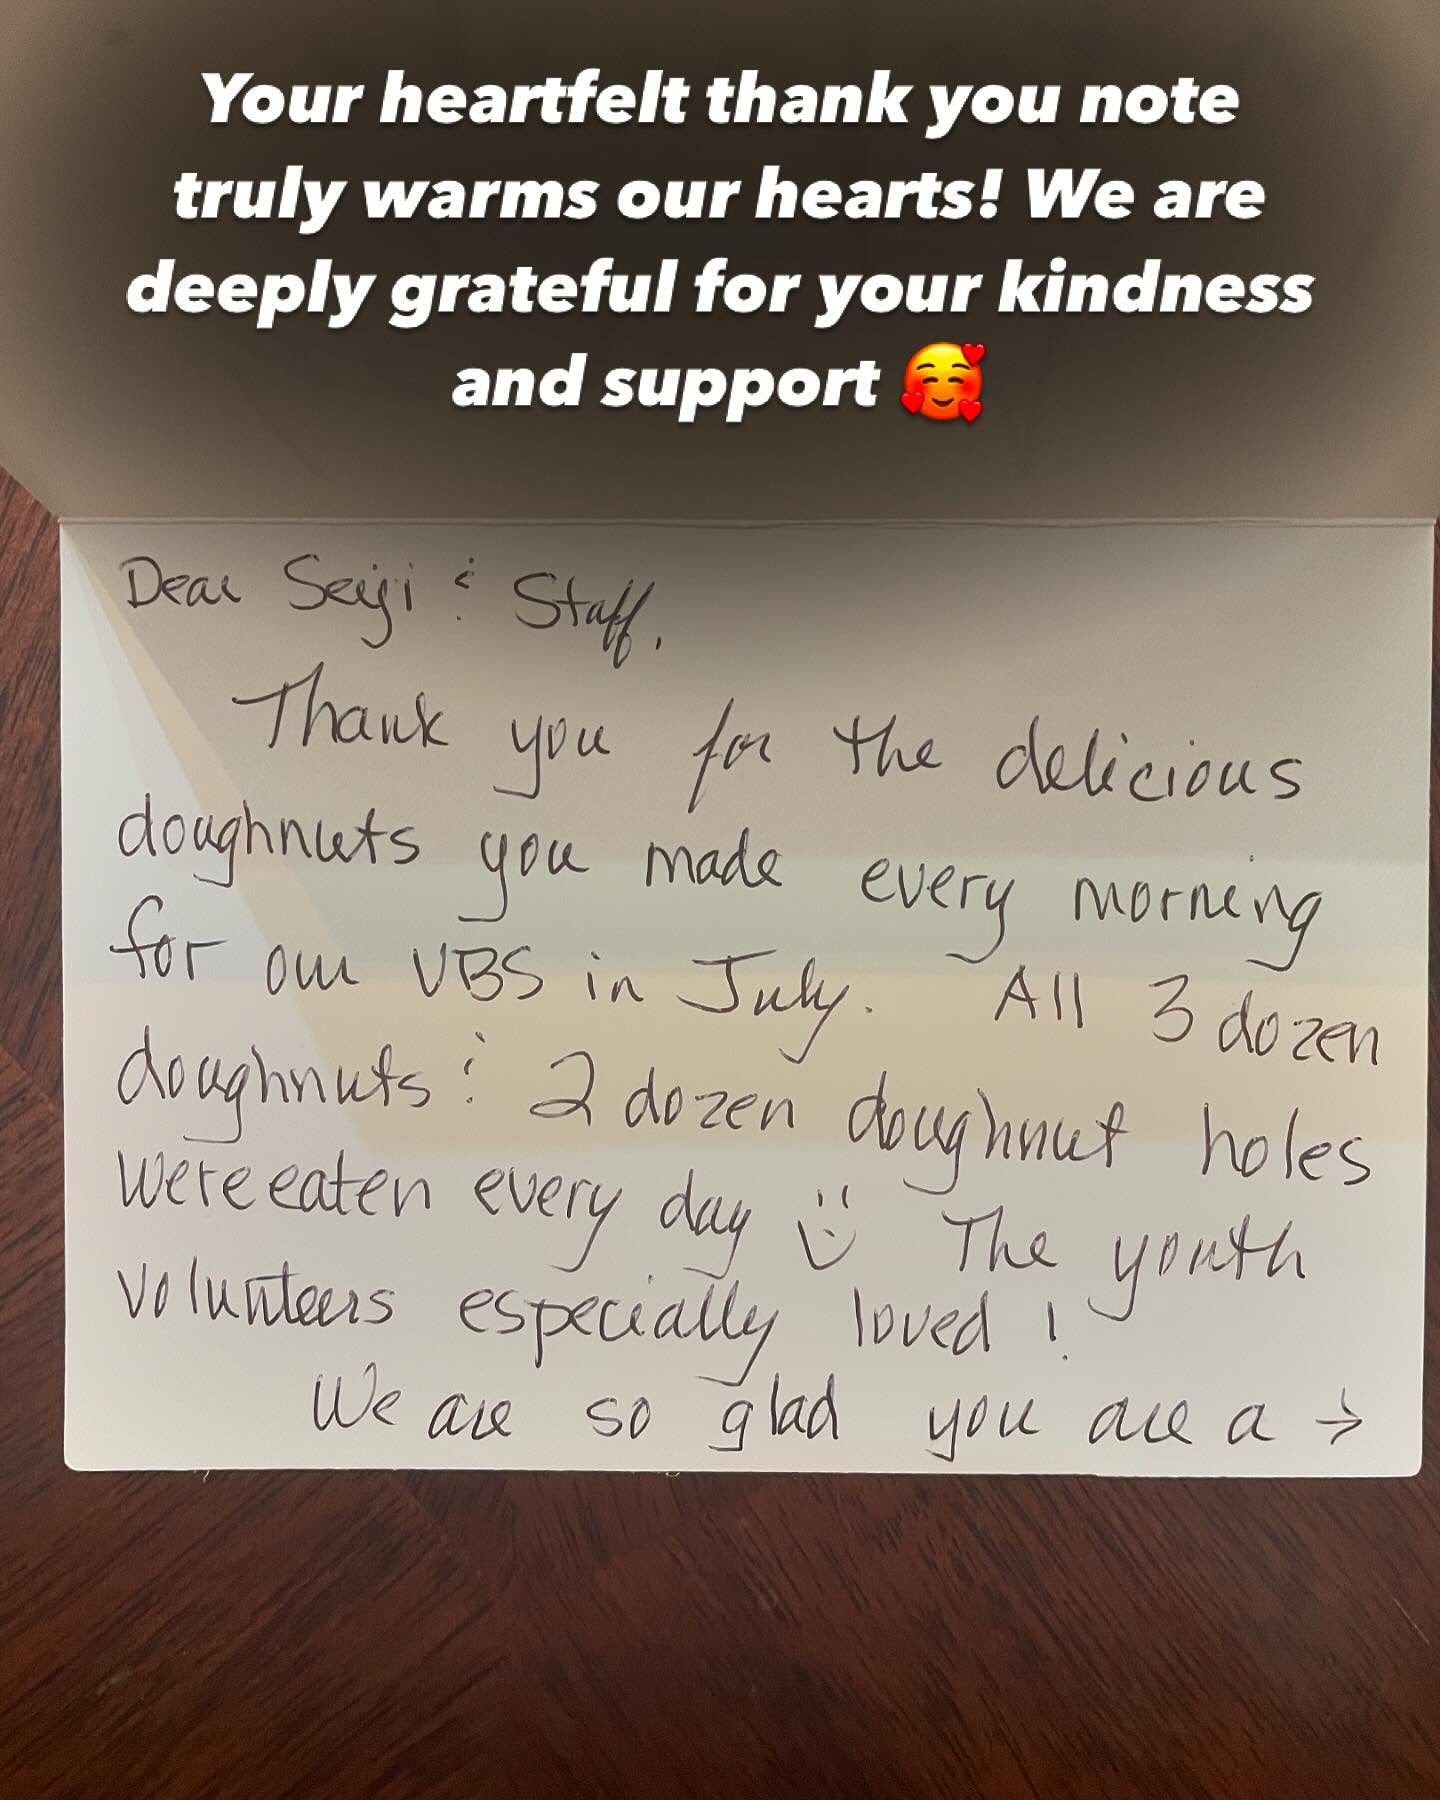 Your heartfelt thank you note
truly warms our hearts! We are
deeply grateful for your kindness
and support 🥰
Dear Seiji & Staff,
Thank you for the delicious
doughnuts you made every morning
for our VBS in July. All 3 dozen
doughnuts & 2 dozen doughnut holes
were eaten every day :) The youth
volunteers especially loved!
We are so glad you are a →